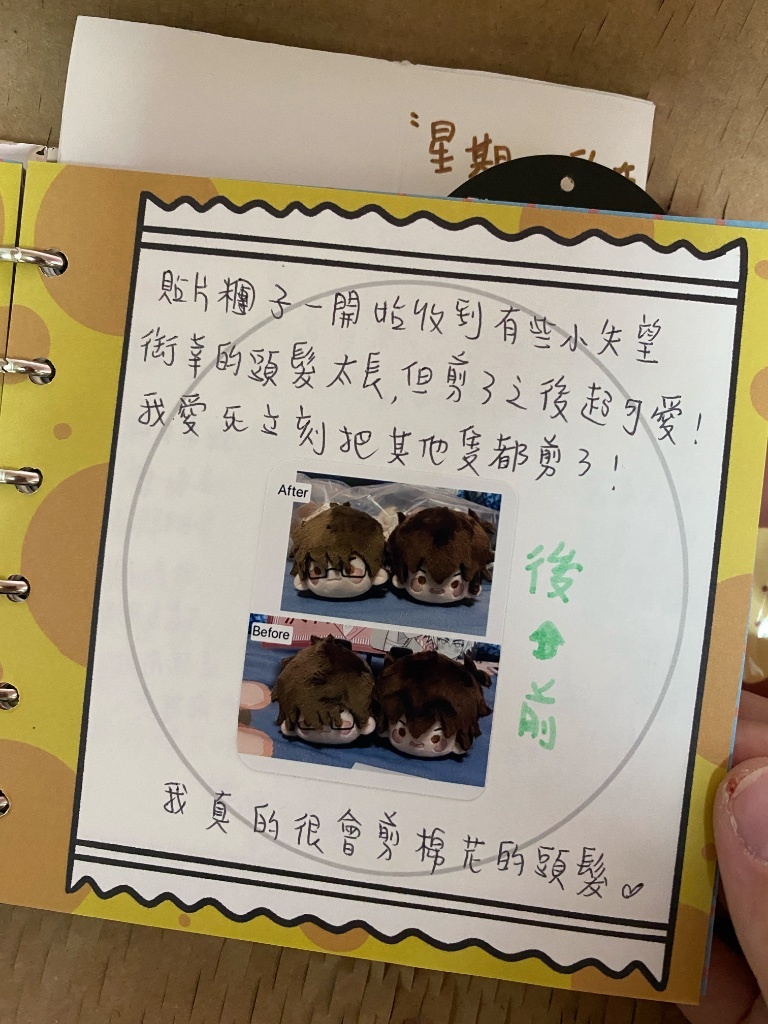 星期
貼片糰子一開始收到有些小失望
衛幸的頭髮太長,但剪了之後超可愛!
我愛死立刻把其他隻都剪了!
After
後
Before
前
我真的很會剪棉花的頭髮♡